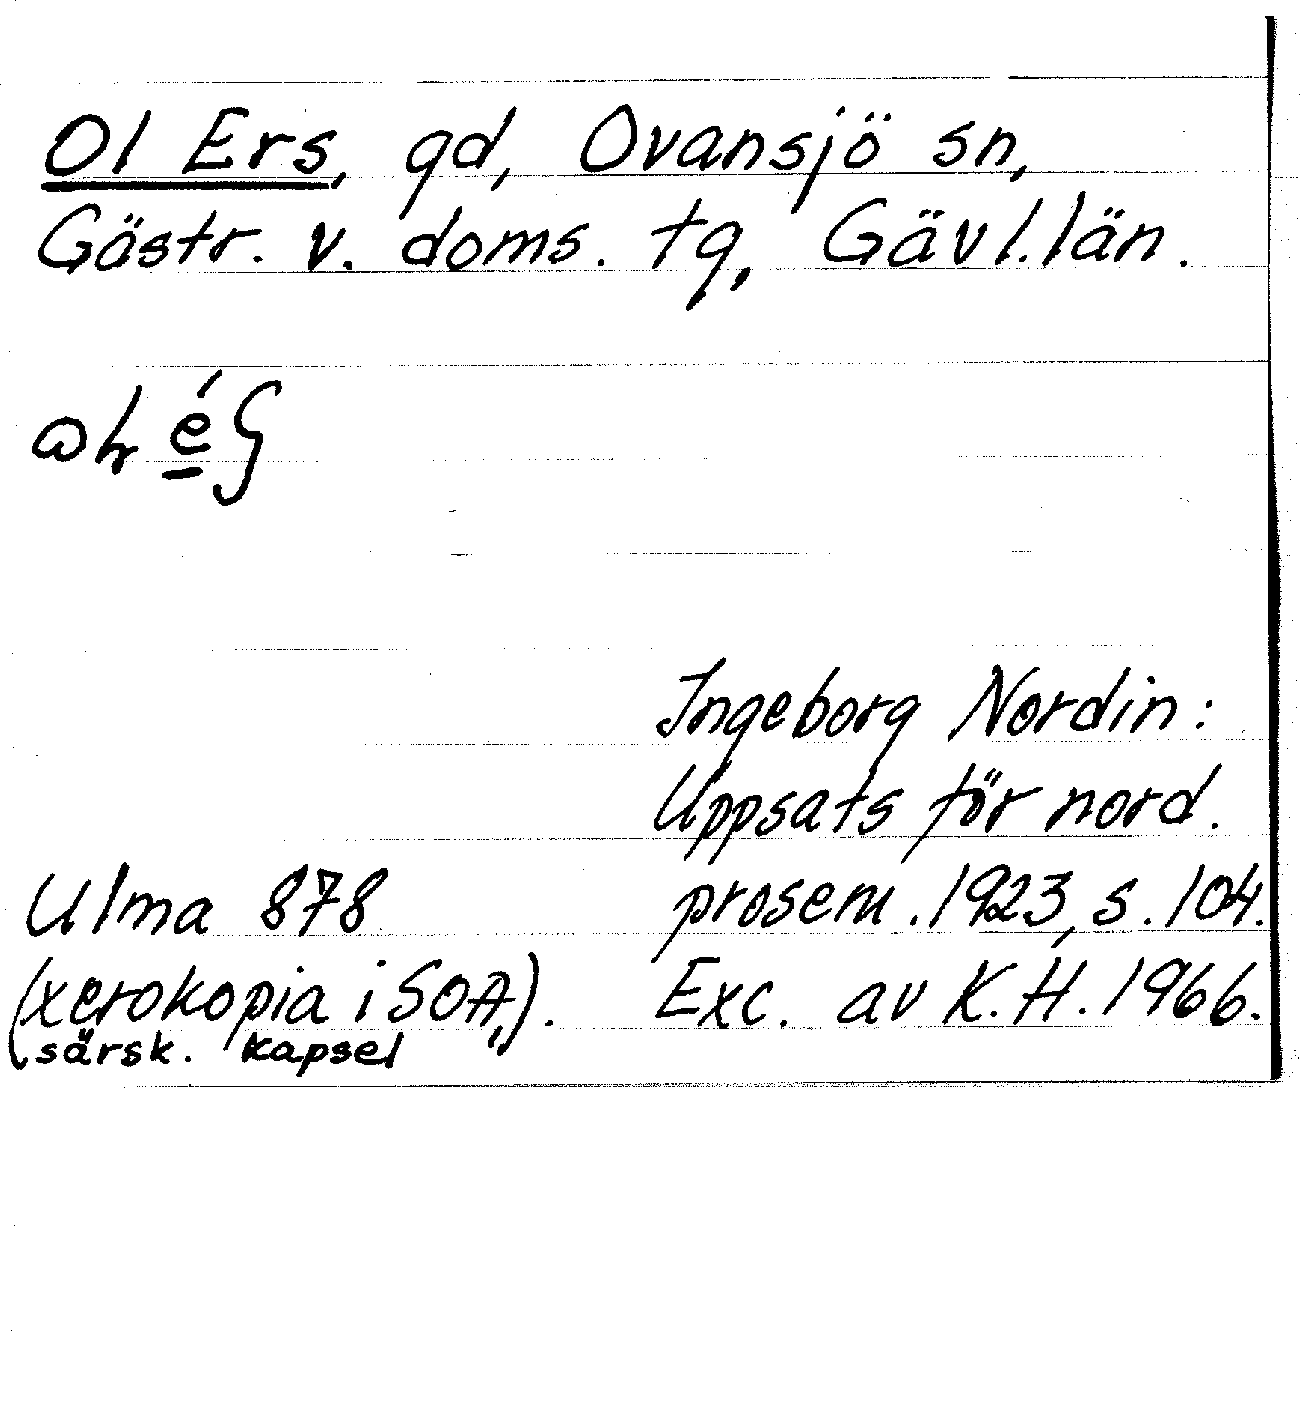 Ol Ers, gd, Ovansjö sn,
Gästr. v. doms. tg, Gävl. län.
Ingeborg Nordin:
Uppsats för nord.
Ulma 878 prosem. 1923, s. 104.
(xerokopia i SOA,). Exc. av K.H. 1966.
särsk. kapsel